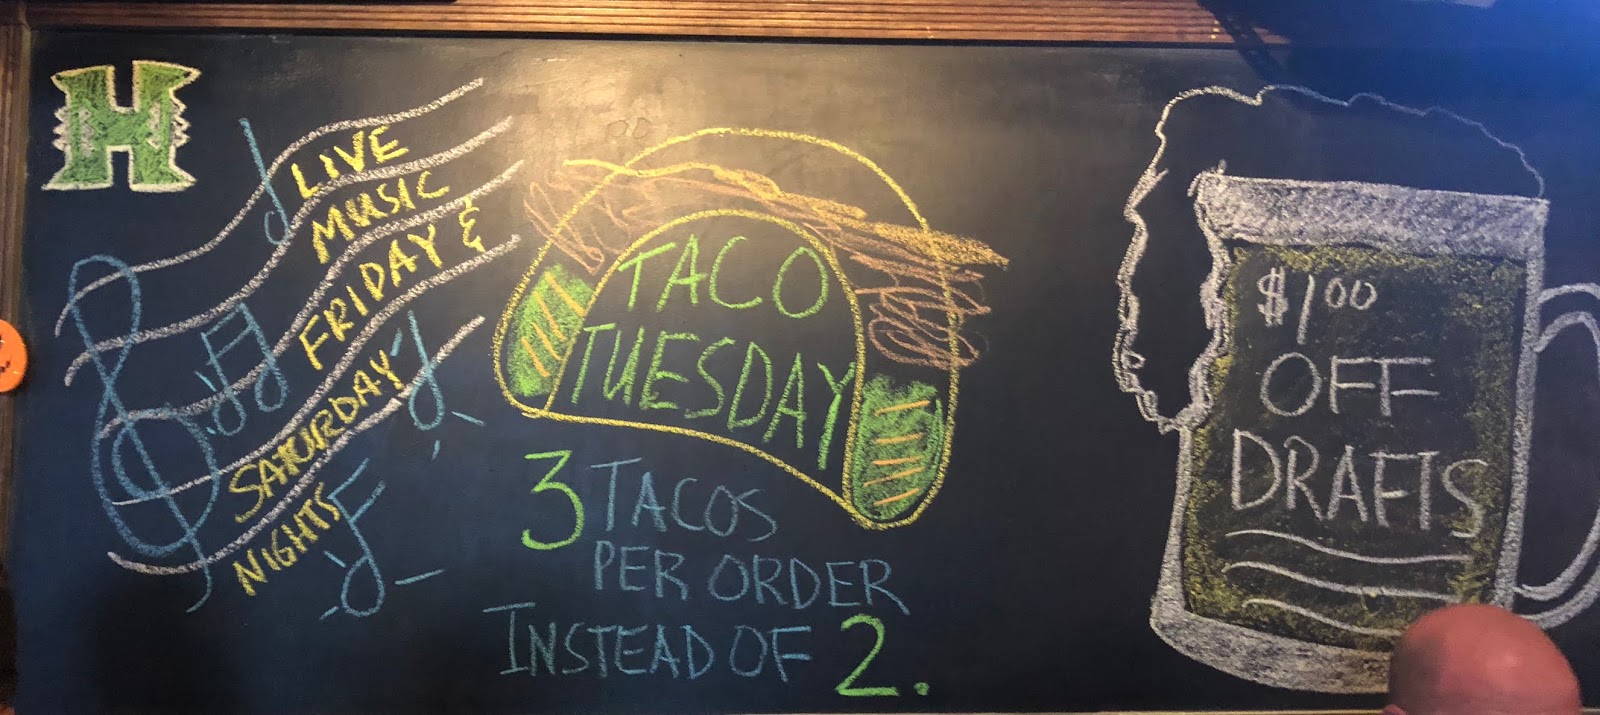 H
LIVE
MUSIC
FRIDAY &
SATURDAY
NIGHTS
TACO
TUESDAY
3 TACOS
PER ORDER
INSTEAD OF 2.
$1.00
OFF
DRAFTS